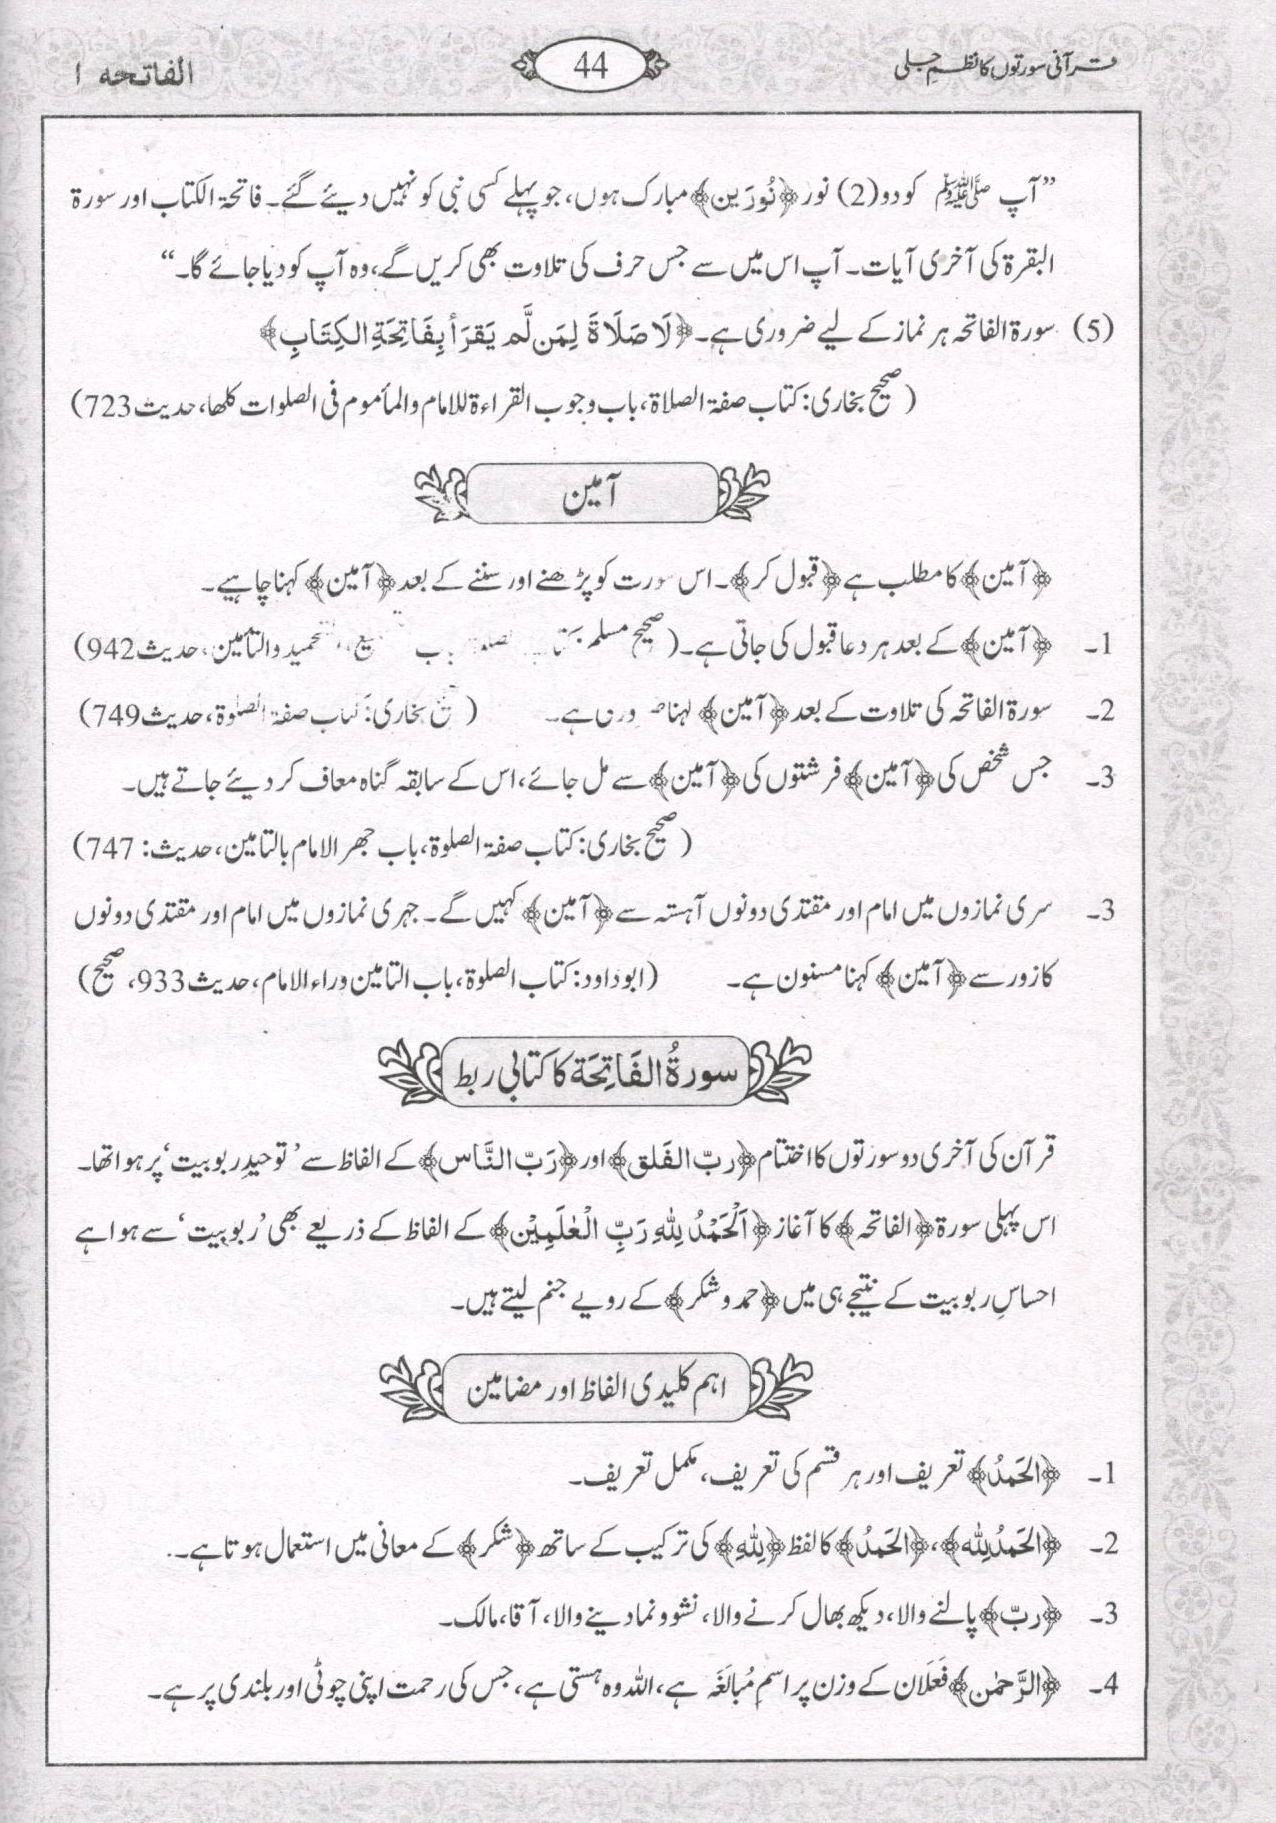 قرآنی سورتوں کا نظمِ جلی
44
الفاتحہ ۱
”آپ ﷺ کو دو(2) نور ﴿نُورَین﴾ مبارک ہوں، جو پہلے کسی نبی کو نہیں دیئے گئے۔ فاتحۃ الکتاب اور سورۃ
البقرۃ کی آخری آیات۔ آپ اس میں سے جس حرف کی تلاوت بھی کریں گے، وہ آپ کو دیا جائے گا۔“
(5) سورۃ الفاتحہ ہر نماز کے لیے ضروری ہے۔ ﴿لَا صَلَاةَ لِمَن لَّم يَقرَأ بِفَاتِحَةِ الكِتَابِ﴾
(صحیح بخاری: کتاب صفۃ الصلاۃ، باب وجوب القراءۃ للامام والمأموم فی الصلوات کلھا، حدیث 723)
آمین
﴿آمین﴾ کا مطلب ہے ﴿قبول کر﴾۔ اس سورت کو پڑھنے اور سننے کے بعد ﴿آمین﴾ کہنا چاہیے۔
1۔ ﴿آمین﴾ کے بعد ہر دعا قبول کی جاتی ہے۔ (صحیح مسلم: والتأمین، حدیث 942)
2۔ سورۃ الفاتحہ کی تلاوت کے بعد ﴿آمین﴾ ہے۔ (بخاری: کتاب صفۃ الصلوۃ، حدیث 749)
3۔ جس شخص کی ﴿آمین﴾ فرشتوں کی ﴿آمین﴾ سے مل جائے، اس کے سابقہ گناہ معاف کر دیئے جاتے ہیں۔
(صحیح بخاری: کتاب صفۃ الصلوۃ، باب جھر الامام بالتامین، حدیث: 747)
3۔ سری نمازوں میں امام اور مقتدی دونوں آہستہ سے ﴿آمین﴾ کہیں گے۔ جہری نمازوں میں امام اور مقتدی دونوں
کا زور سے ﴿آمین﴾ کہنا مسنون ہے۔ (ابوداود: کتاب الصلوۃ، باب التامین وراء الامام، حدیث 933، صحیح)
سورۃُ الفَاتِحَة کا کتابی ربط
قرآن کی آخری دو سورتوں کا اختتام ﴿ربّ الفَلق﴾ اور ﴿رَبّ النَّاس﴾ کے الفاظ سے ’توحیدِ ربوبیت‘ پر ہوا تھا۔
اس پہلی سورۃ ﴿الفاتحہ﴾ کا آغاز ﴿اَلْحَمْدُ لِلّٰهِ رَبِّ الْعٰلَمِيْن﴾ کے الفاظ کے ذریعے بھی ’ربوبیت‘ سے ہوا ہے
احساسِ ربوبیت کے نتیجے ہی میں ﴿حمد و شکر﴾ کے رویے جنم لیتے ہیں۔
اہم کلیدی الفاظ اور مضامین
1۔ ﴿الحَمدُ﴾ تعریف اور ہر قسم کی تعریف، مکمل تعریف۔
2۔ ﴿الحَمدُ لِلّٰه﴾، ﴿الحَمدُ﴾ کا لفظ ﴿لِلّٰهِ﴾ کی ترکیب کے ساتھ ﴿شکر﴾ کے معانی میں استعمال ہوتا ہے۔
3۔ ﴿ربّ﴾ پالنے والا، دیکھ بھال کرنے والا، نشوونما دینے والا، آقا، مالک۔
4۔ ﴿الرَّحمٰن﴾ فَعَلَان کے وزن پر اسمِ مُبالَغَہ ہے، اللہ وہ ہستی ہے، جس کی رحمت اپنی چوٹی اور بلندی پر ہے۔